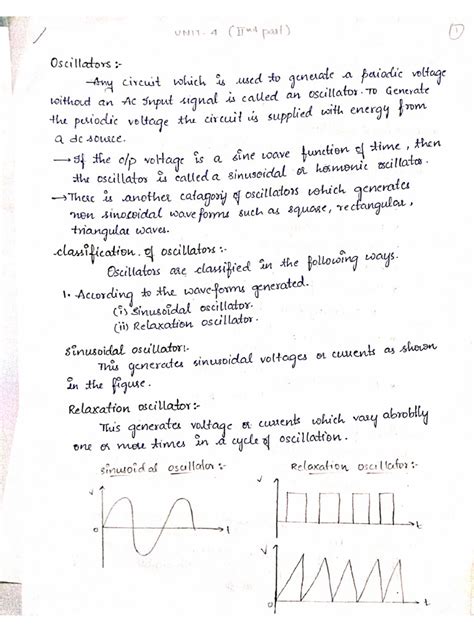 UNIT-4 (IInd part)
1
Oscillators :-
Any circuit which is used to generate a peiodic voltage
without an AC Input signal is called an oscillator. To Generate
the periodic voltage the circuit is supplied with energy from
a dc source.
→ If the o/p voltage is a sine wave function of time, then
the oscillator is called a sinusoidal or hormonic oscillator.
→ There is another catagory of oscillators which generates
non sinosoidal wave forms such as square, rectangular,
triangular waves.
classification of oscillators :-
Oscillators are classified in the following ways.
1. According to the wave-forms generated.
(i) Sinusoidal oscillator.
(ii) Relaxation oscillator.
Sinusoidal oscillator:-
This generates sinusoidal voltages or currents as shown
in the figure.
Relaxation oscillator:-
This generates voltage or currents which vary abrobtly
one or more times in a cycle of oscillation.
Sinusoidal oscillator :-
Relaxation oscillator :-
V
0
t
V
0
t
V
0
t